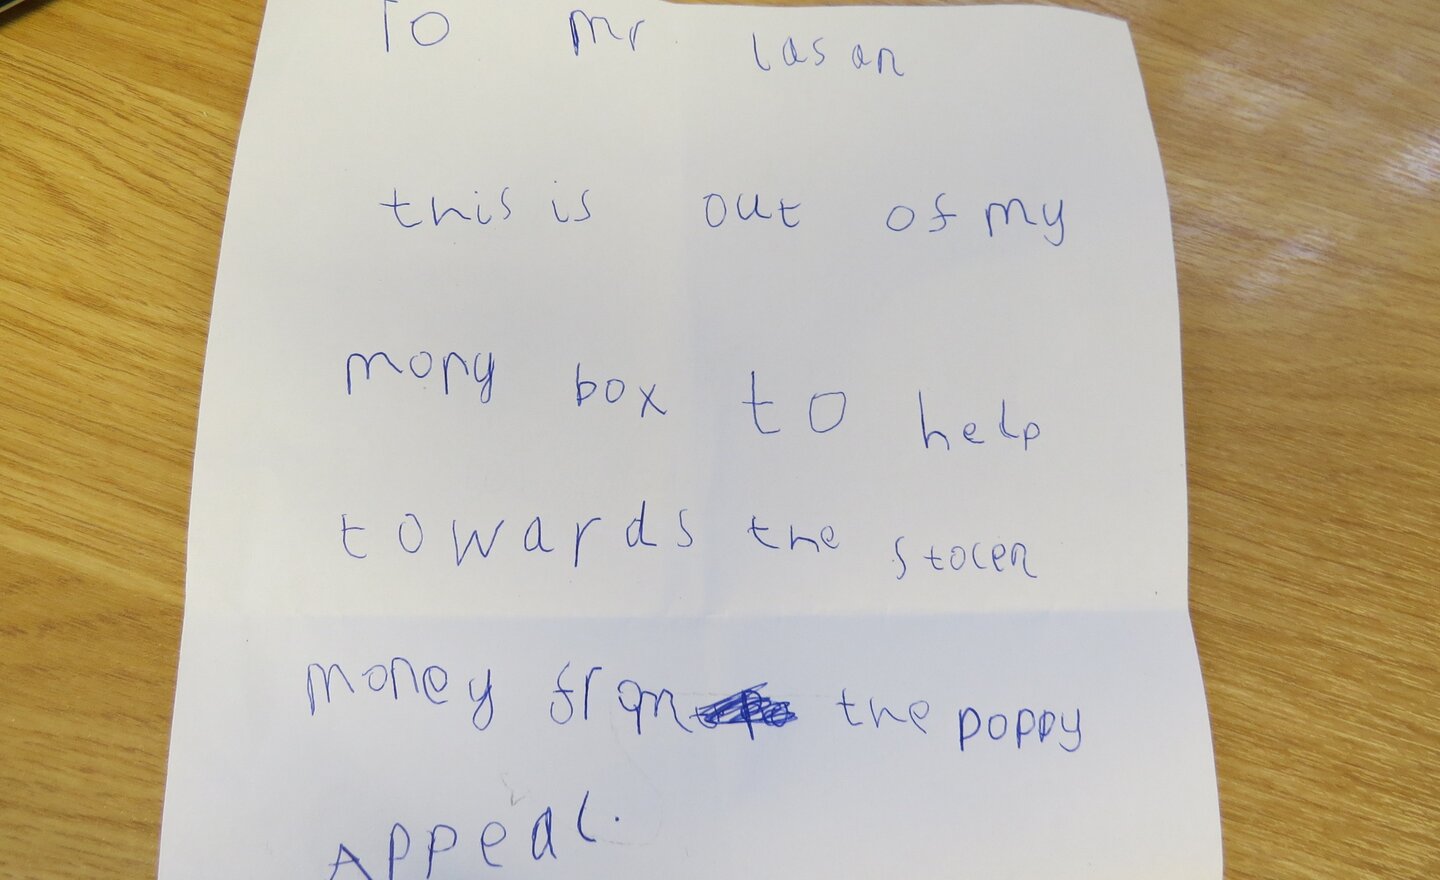 To Mr lasan
this is out of my
mony box to help
towards the stolen
money from the poppy
Appeal.